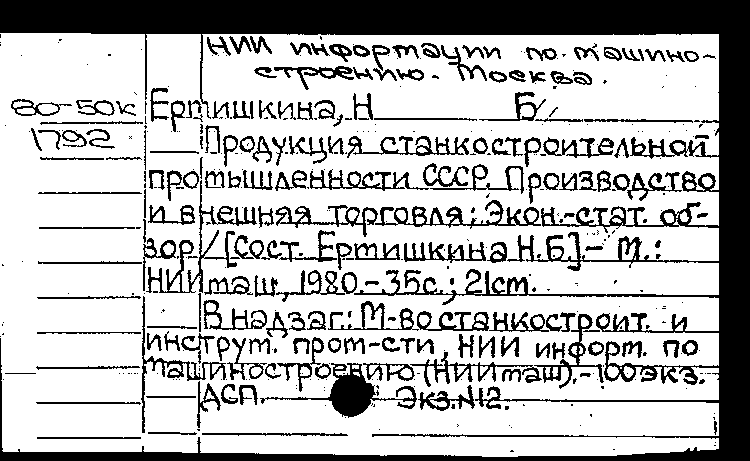 НИИ информации по машино-
строению. Москва.
80-50к Ертишкина, Н Б
1792 Продукция станкостроительной
промышленности СССР. Производство
и внешняя торговля: Экон.-стат. об-
зор / [Сост. Ертишкина Н.Б.].- М.:
НИИмаш, 1980.-35с.; 21cm.
В надзаг.: М-во станкостроит. и
инструм. пром-сти, НИИ информ. по
машиностроению (НИИмаш).-100экз.
ДСП. Экз.N12.